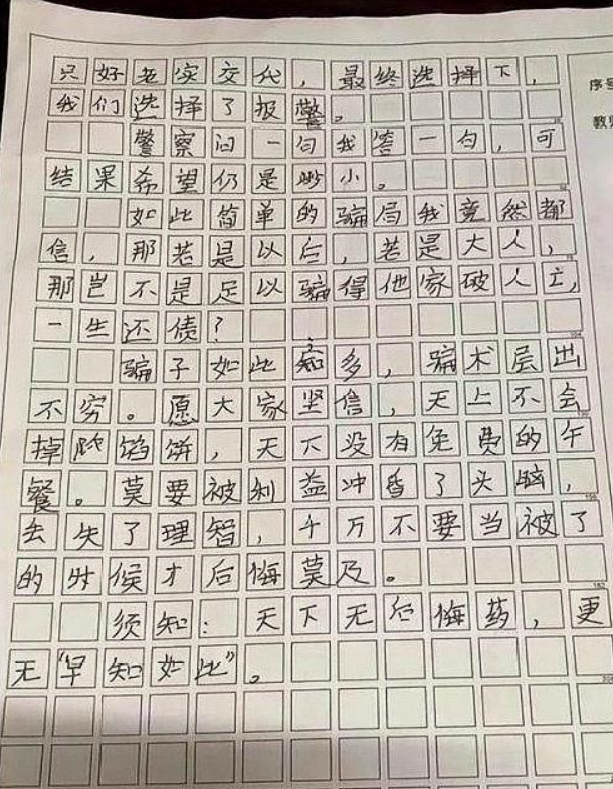 只好老实交代，最终选择下，
序号
我们选择了报警。
教师
警察问一句我答一句，可
结果希望仍是渺小。
如此简单的骗局我竟然都
信，那若是以后，若是大人，
那岂不是足以骗得他家破人亡，
一生还债？
骗子如此之多，骗术层出
不穷。愿大家坚信，天上不会
掉馅饼，天下没有免费的午
餐。莫要被利益冲昏了头脑，
去失了理智，千万不要当被了
的时候才后悔莫及。
须知：天下无后悔药，更
无“早知如此”。